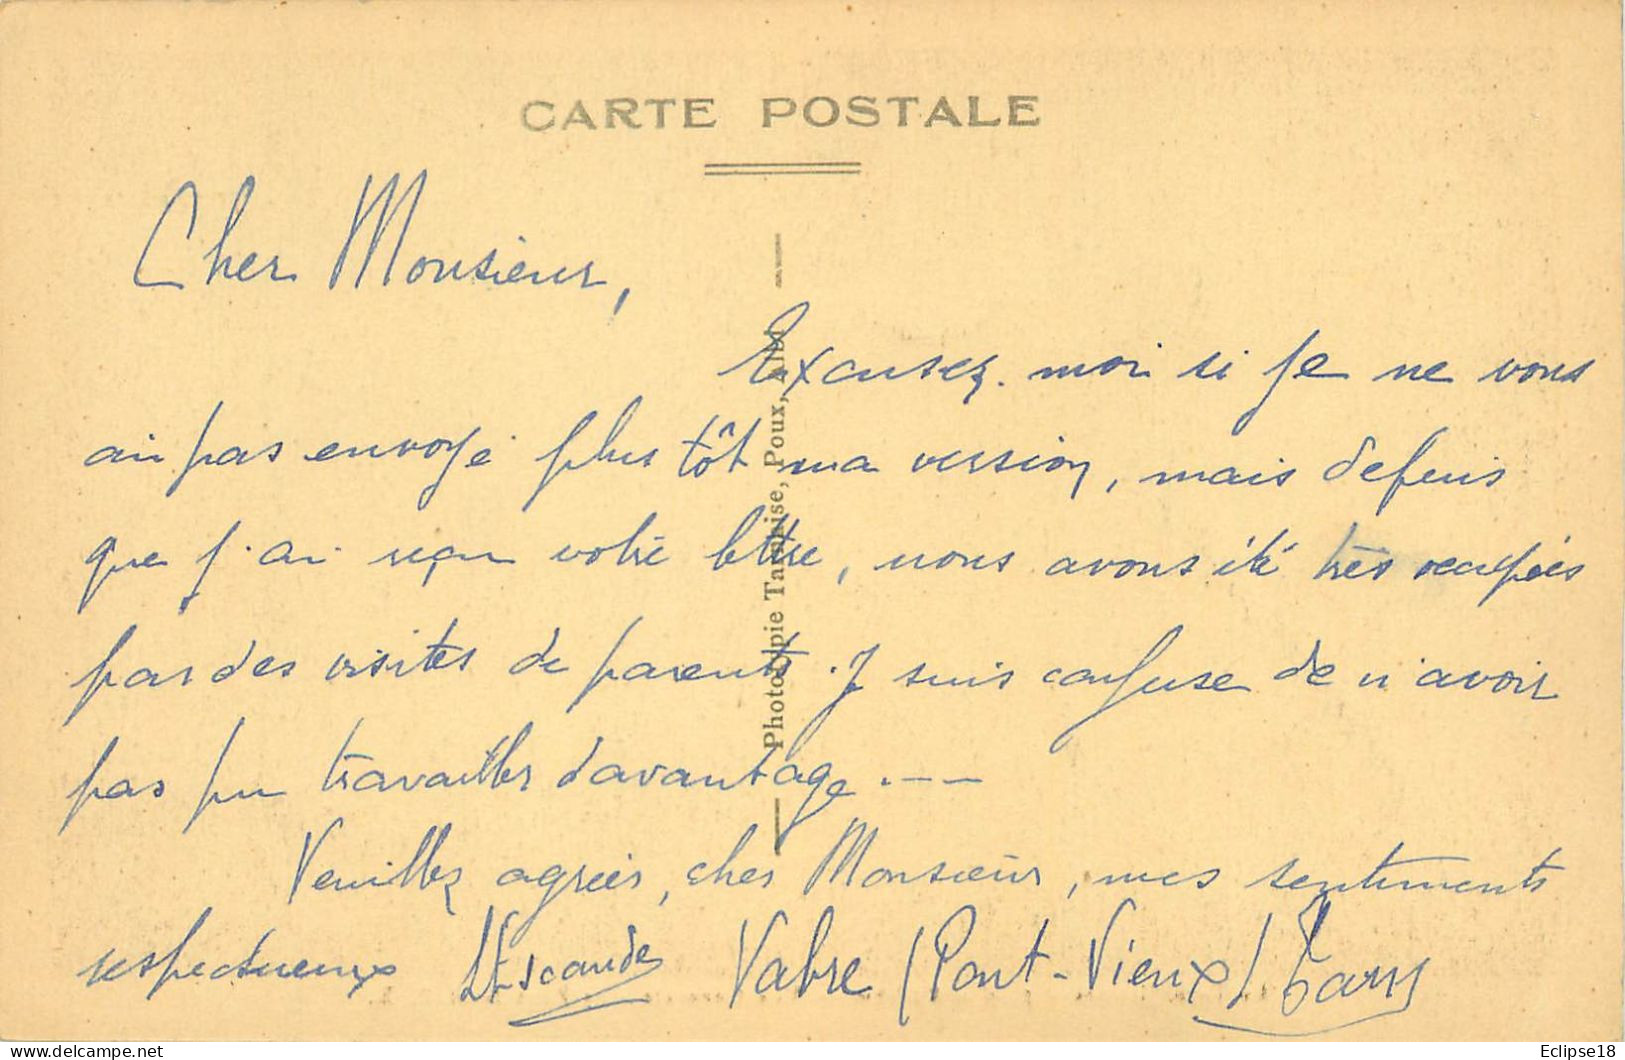 CARTE POSTALE
Cher Monsieur,
Excusez-moi si je ne vous
ai pas envoyé plus tôt ma version, mais depuis
que j'ai reçu votre lettre, nous avons été très occupées
par des visites de parents. Je suis confuse de n'avoir
pas pu travailler davantage.--
Veuillez agréer, cher Monsieur, mes sentiments
respectueux Escande Vabre (Pont-Vieux) Tarn
Phototypie Tarnaise, Poux, Albi
Eclipse18